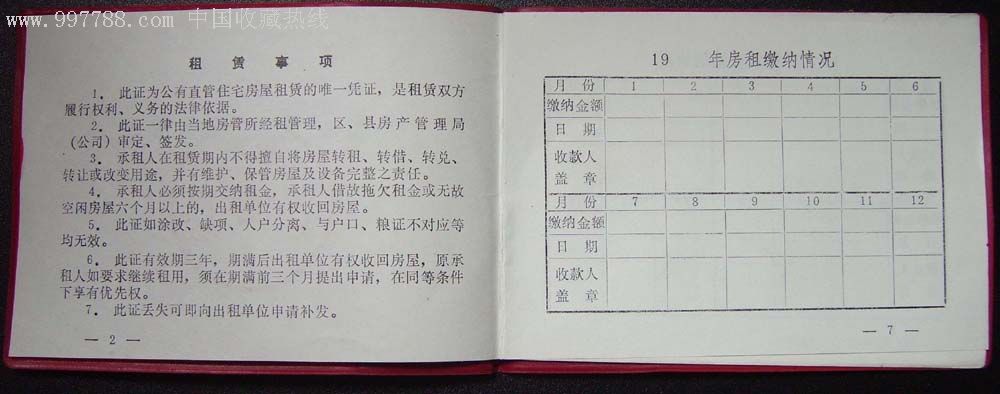 www.997788.com 中国收藏热线
租赁事项
1．此证为公有直管住宅房屋租赁的唯一凭证，是租赁双方
履行权利、义务的法律依据。
2．此证一律由当地房管所经租管理，区、县房产管理局
（公司）审定、签发。
3．承租人在租赁期内不得擅自将房屋转租、转借、转兑、
转让或改变用途，并有维护、保管房屋及设备完整之责任。
4．承租人必须按期交纳租金，承租人借故拖欠租金或无故
空闲房屋六个月以上的，出租单位有权收回房屋。
5．此证如涂改、缺项、人户分离、与户口、粮证不对应等
均无效。
6．此证有效期三年，期满后出租单位有权收回房屋，原承
租人如要求继续租用，须在期满前三个月提出申请，在同等条件
下享有优先权。
7．此证丢失可即向出租单位申请补发。
— 2 —
19 年房租缴纳情况
月份 1 2 3 4 5 6
缴纳金额
日期
收款人
盖章
月份 7 8 9 10 11 12
缴纳金额
日期
收款人
盖章
— 7 —